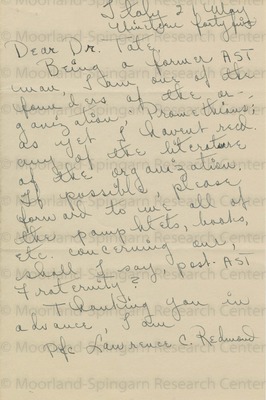 Italy 21 May
Nineteen forty five
Dear Dr. Tate,
Being a former AST
man, I am one of the
founders of the or-
ganization, Promethians;
as yet I havent recd.
any of the literature
of the organization.
If possible, please
forward to me all of
the pamphlets, books,
etc. concerning our,
shall I say, post-AST
fraternity?
Thanking you in
advance, I am
Pfc Lawrence C. Redmond
© Moorland-Spingarn Research Center